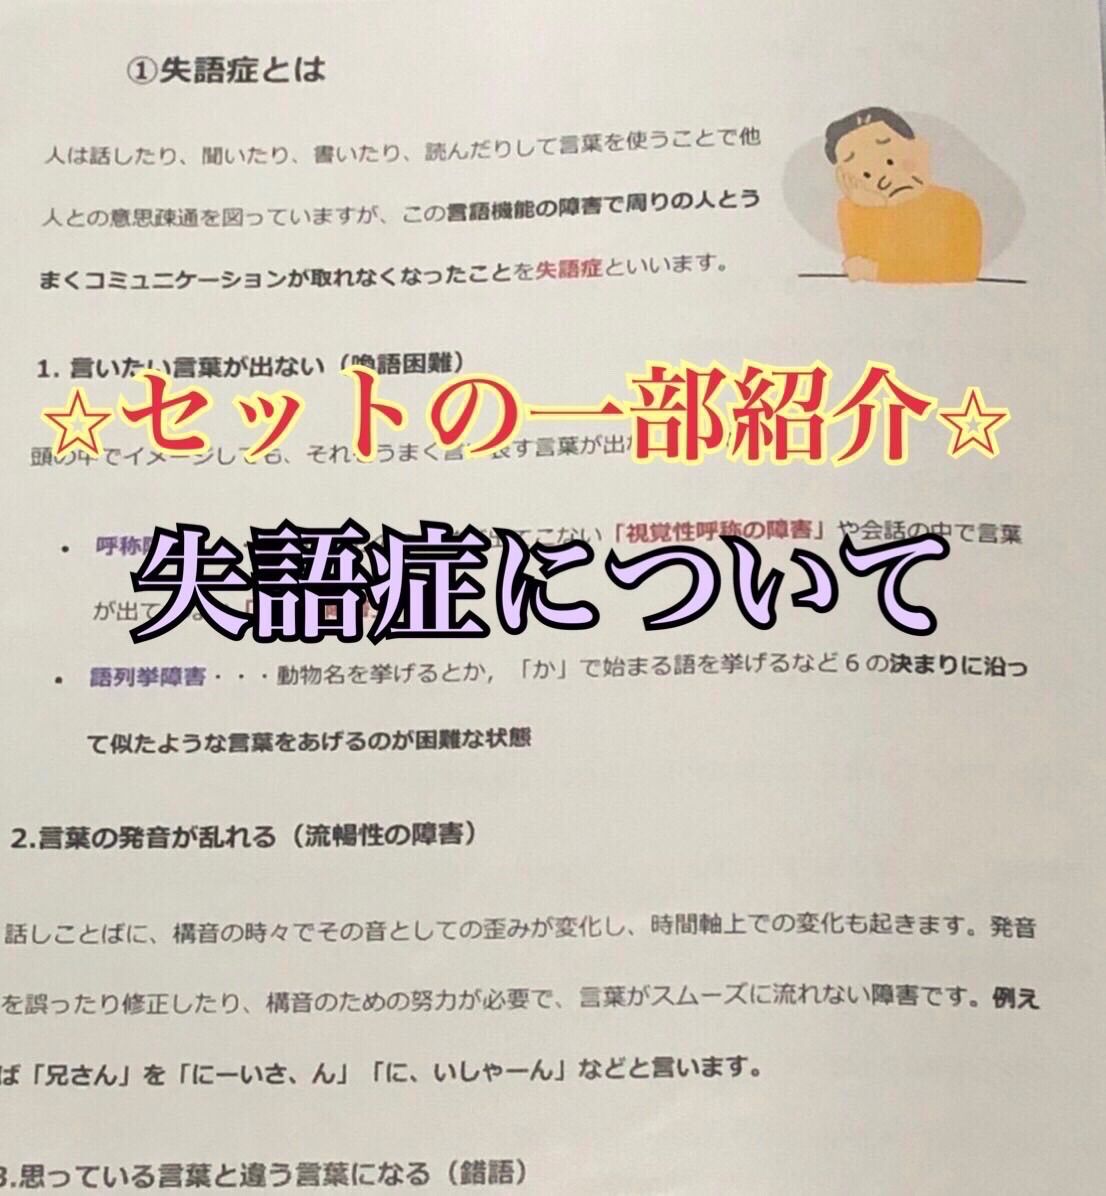 ①失語症とは
人は話したり、聞いたり、書いたり、読んだりして言葉を使うことで他
人との意思疎通を図っていますが、この言語機能の障害で周りの人とう
まくコミュニケーションが取れなくなったことを失語症といいます。
1. 言いたい言葉が出ない（喚語困難）
☆セットの一部紹介☆
頭の中でイメージしても、それをうまく言い表す言葉が出
失語症について
・呼称 てこない「視覚性呼称の障害」や会話の中で言葉
が出て
・語列挙障害・・・動物名を挙げるとか,「か」で始まる語を挙げるなど６の決まりに沿っ
て似たような言葉をあげるのが困難な状態
2.言葉の発音が乱れる（流暢性の障害）
話しことばに、構音の時々でその音としての歪みが変化し、時間軸上での変化も起きます。発音
を誤ったり修正したり、構音のための努力が必要で、言葉がスムーズに流れない障害です。例え
ば「兄さん」を「にーいさ、ん」「に、いしゃーん」などと言います。
3.思っている言葉と違う言葉になる（錯語）